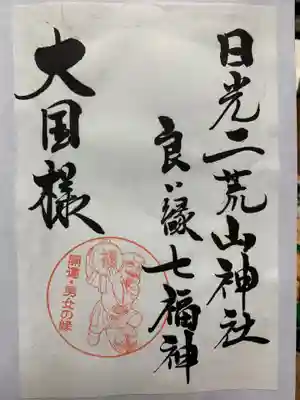 日光二荒山神社
良い縁七福神
大国様
開運・男女の縁